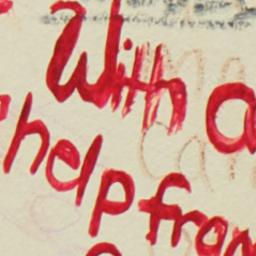 With a
help from